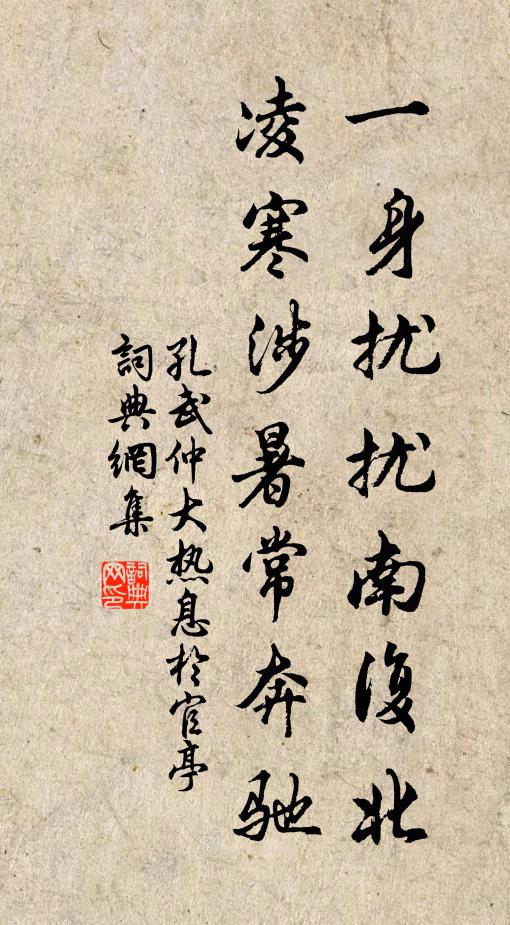 一身扰扰南復北
凌寒涉暑常奔驰
孔武仲大热息於官亭
詞典網集
詞典
网印